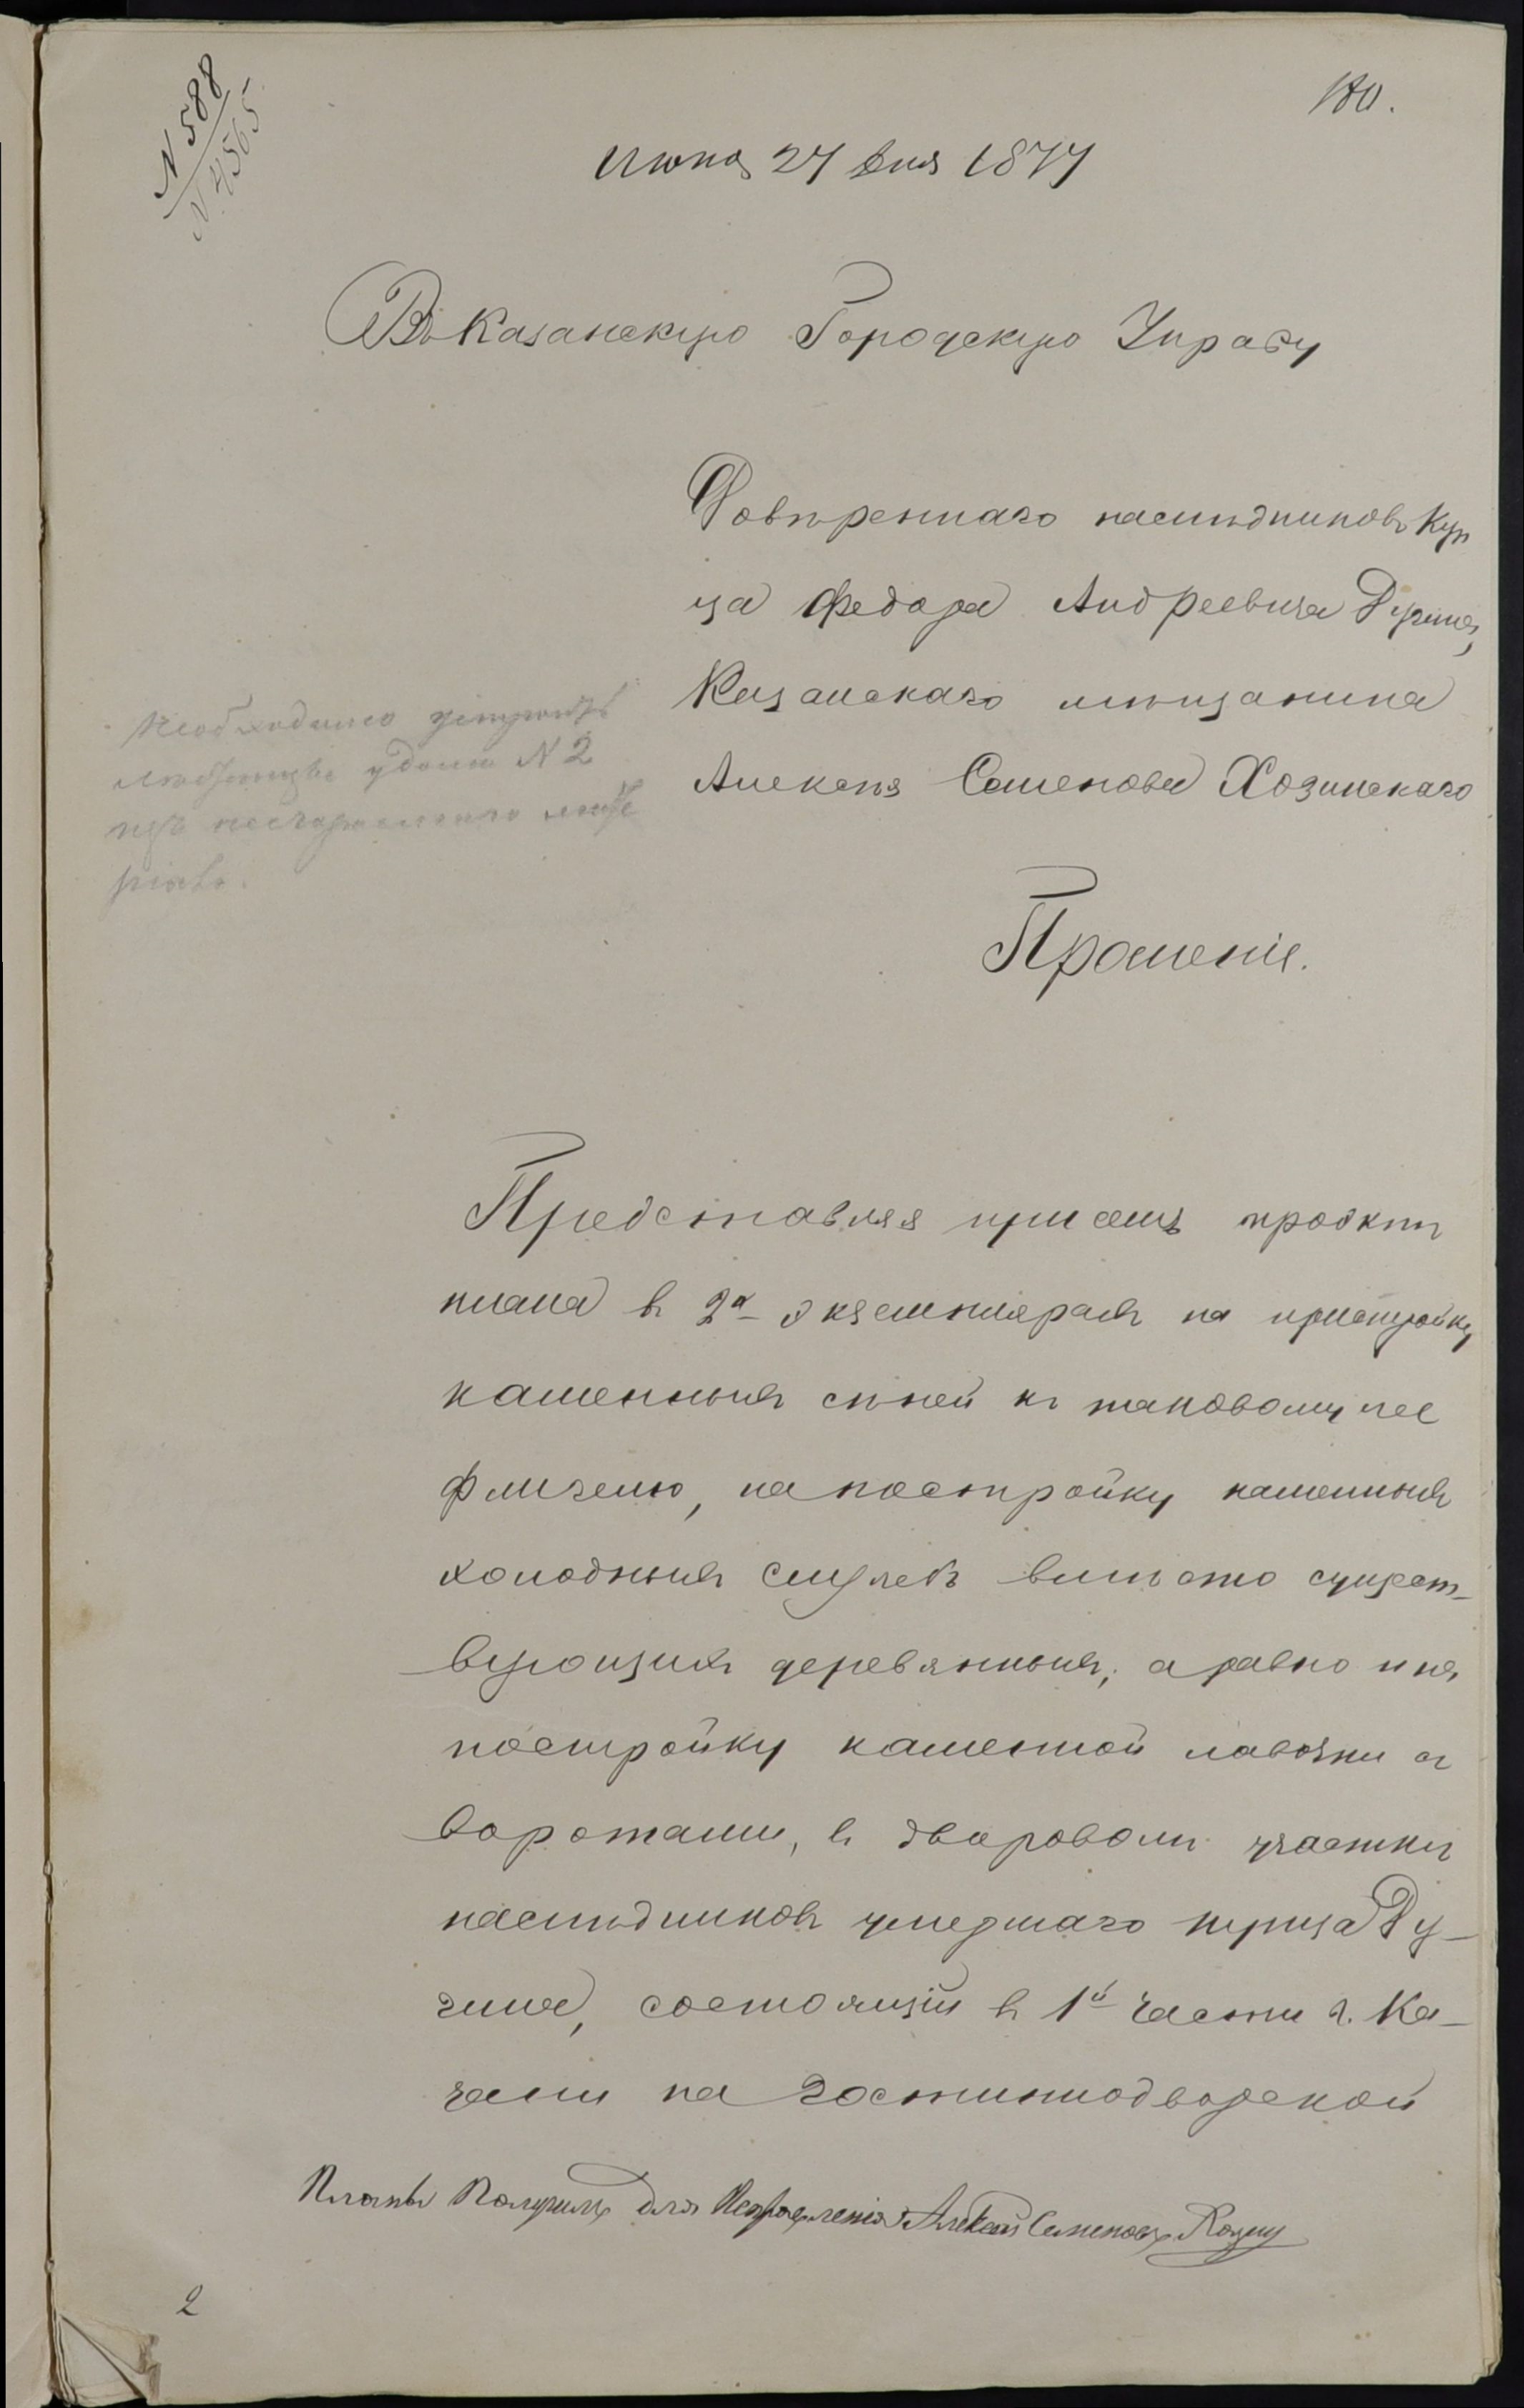 N 588
N 4565
180.
Июня 27 дня 1877
Въ Казанскую Городскую Управу
Довѣреннаго наслѣдниковъ Куп
ца Федора Андреевича Дугина,
Казанскаго мѣщанина
Алексѣя Семенова Хозинскаго
Необходимо устроить
лѣстницы у дома N 2
изъ несгораемаго мате
ріала.
Прошеніе.
Представляя при семъ проэктъ
плана въ 2х экземплярахъ на пристройку
каменныхъ сѣней къ таковому же
флигелю, на постройку каменныхъ
холодныхъ службъ вмѣсто сущест-
вующихъ деревянныхъ, а равно и на
постройку каменной лавочки съ
воротами, въ дворовомъ участкѣ
наслѣдниковъ умершаго купца Ду-
гина, состоящій въ 1й части г. Ка-
зани на Гостиннодворской
Планы Получилъ для Исправленія Алексей Семеновъ
2